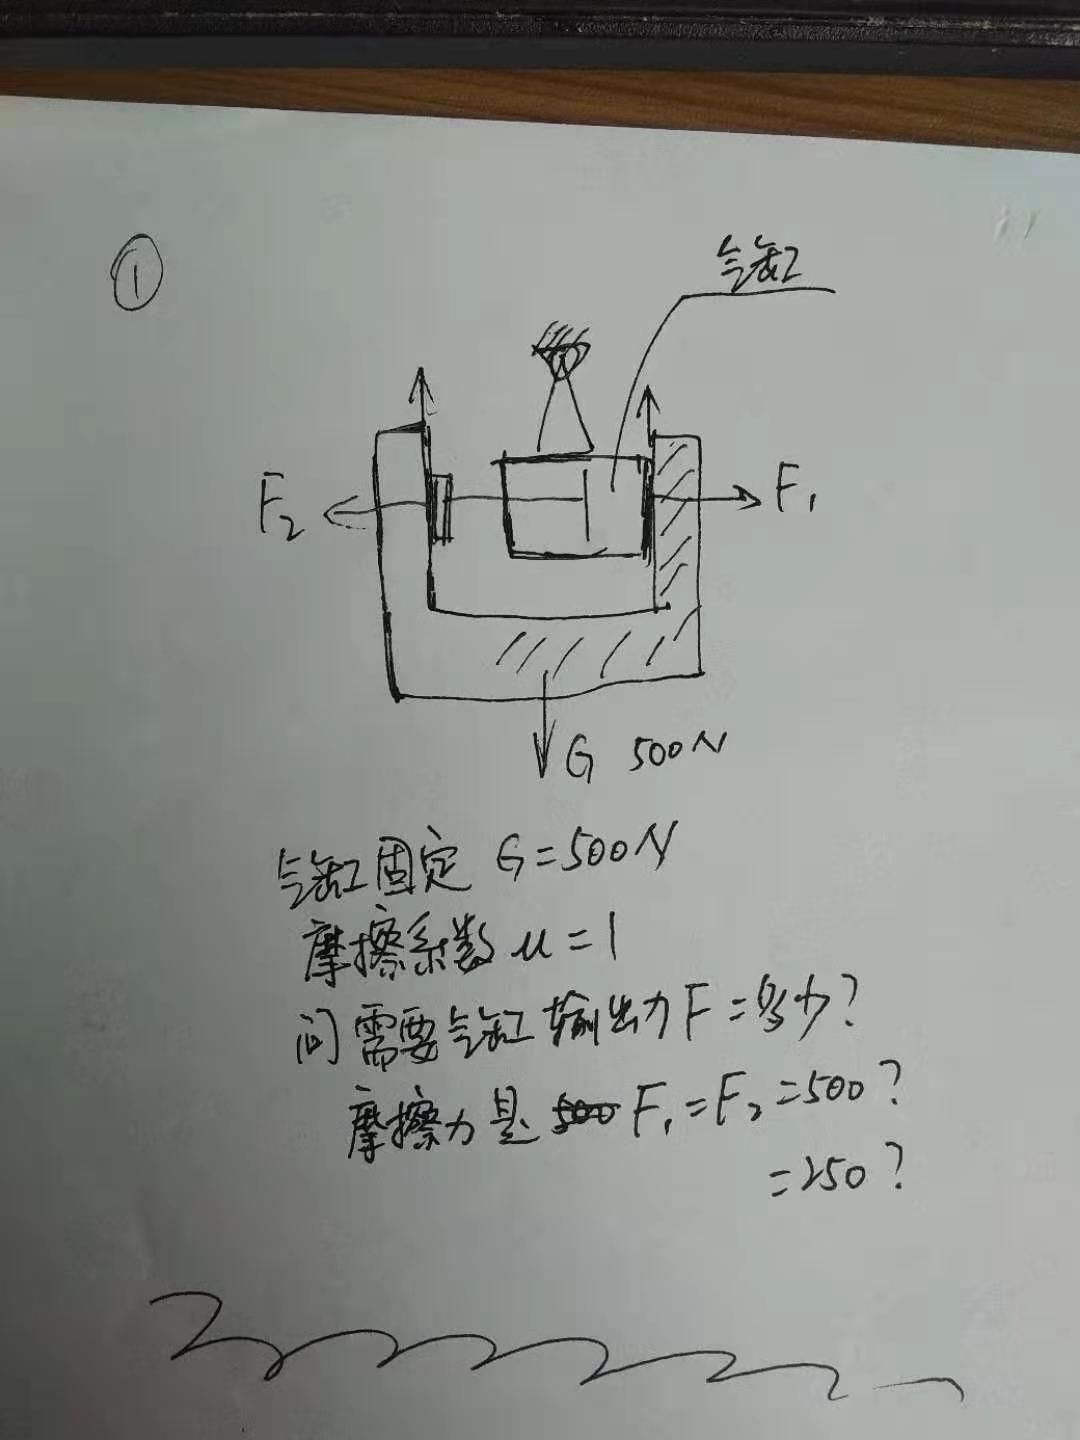 ①
气缸
F₂
F₁
G 500N
气缸固定 G=500N
摩擦系数 u=1
问需要气缸输出力F=多少?
摩擦力是 F₁=F₂=500?
=250?